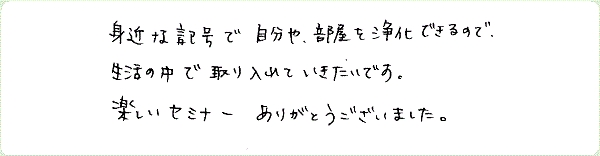 身近な記号で自分や、部屋を浄化できるので、
生活の中で取り入れていきたいです。
楽しいセミナー ありがとうございました。